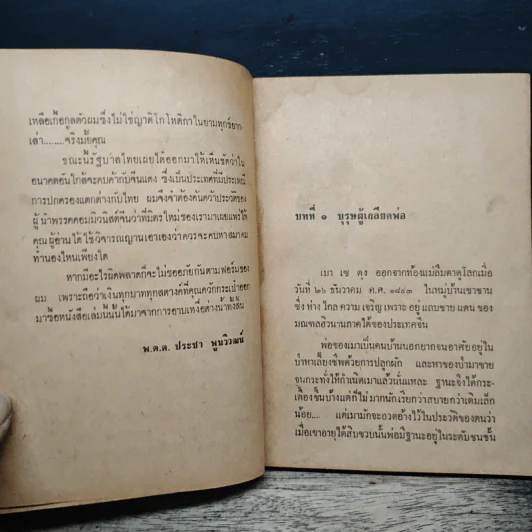 เหลือเกื้อกูลตัวผมซึ่งไม่ใช่ญาติโกโหติกาในยามทุกข์ยาก-
เล่า........จริงมั้ยคุณ
ขณะนี้รัฐบาลไทยเผยได้ออกมาให้เห็นชัดว่าใน
อนาคตอันใกล้จะคบค้ากับจีนแดง ซึ่งเป็นประเทศที่มีประเพณี
การปกครองแตกต่างกับไทย ผมจึงจำต้องค้นคว้าประวัติของ
ผู้นำพรรคคอมมิวนิสต์จีนว่าที่มิตรใหม่ของเรามาเผยแพร่ให้
คุณผู้อ่านได้ใช้วิจารณญาณเอาเองว่าควรจะคบหาสมาคม
ทำนองไหนเพียงใด
หากมีอะไรผิดพลาดก็จะไม่ขออภัยกันตามฟอร์มของ
ผม เพราะถือว่าเงินทุกบาททุกสตางค์ที่คุณควักกระเป๋าออก
มาซื้อหนังสือเล่มนี้นั้นได้มาจากการอาบเหงื่อต่างน้ำทั้งสิ้น
พ.ต.ต. ประชา พูนวิวัฒน์
บทที่ ๑ บุรุษผู้เกลียดพ่อ
เมา เซ ตุง ออกจากท้องแม่ลืมตาดูโลกเมื่อ
วันที่ ๒๖ ธันวาคม ค.ศ. ๑๘๙๓ ในหมู่บ้านเชาชาน
ซึ่ง ห่าง ไกล ความ เจริญ เพราะ อยู่ แถบชาย แดน ของ
มณฑลฮัวนานภาคใต้ของประเทศจีน
พ่อของเมาเป็นคนบ้านนอกยากจนอาศัยอยู่ใน
ป่าหาเลี้ยงชีพด้วยการปลูกผัก และหาของป่ามาขาย
จนกระทั่งให้กำเนิดเมาแล้วนั่นแหละ ฐานะจึงได้กระ-
เตื้องขึ้นบ้างแต่ก็ไม่มากนักเรียกว่าสบายกว่าเดิมเล็ก
น้อย.... แต่เมามักจะอวดอ้างไว้ในประวัติของตนว่า
เมื่อเขาอายุได้สิบขวบนั้นพ่อมีฐานะอยู่ในระดับชนชั้น